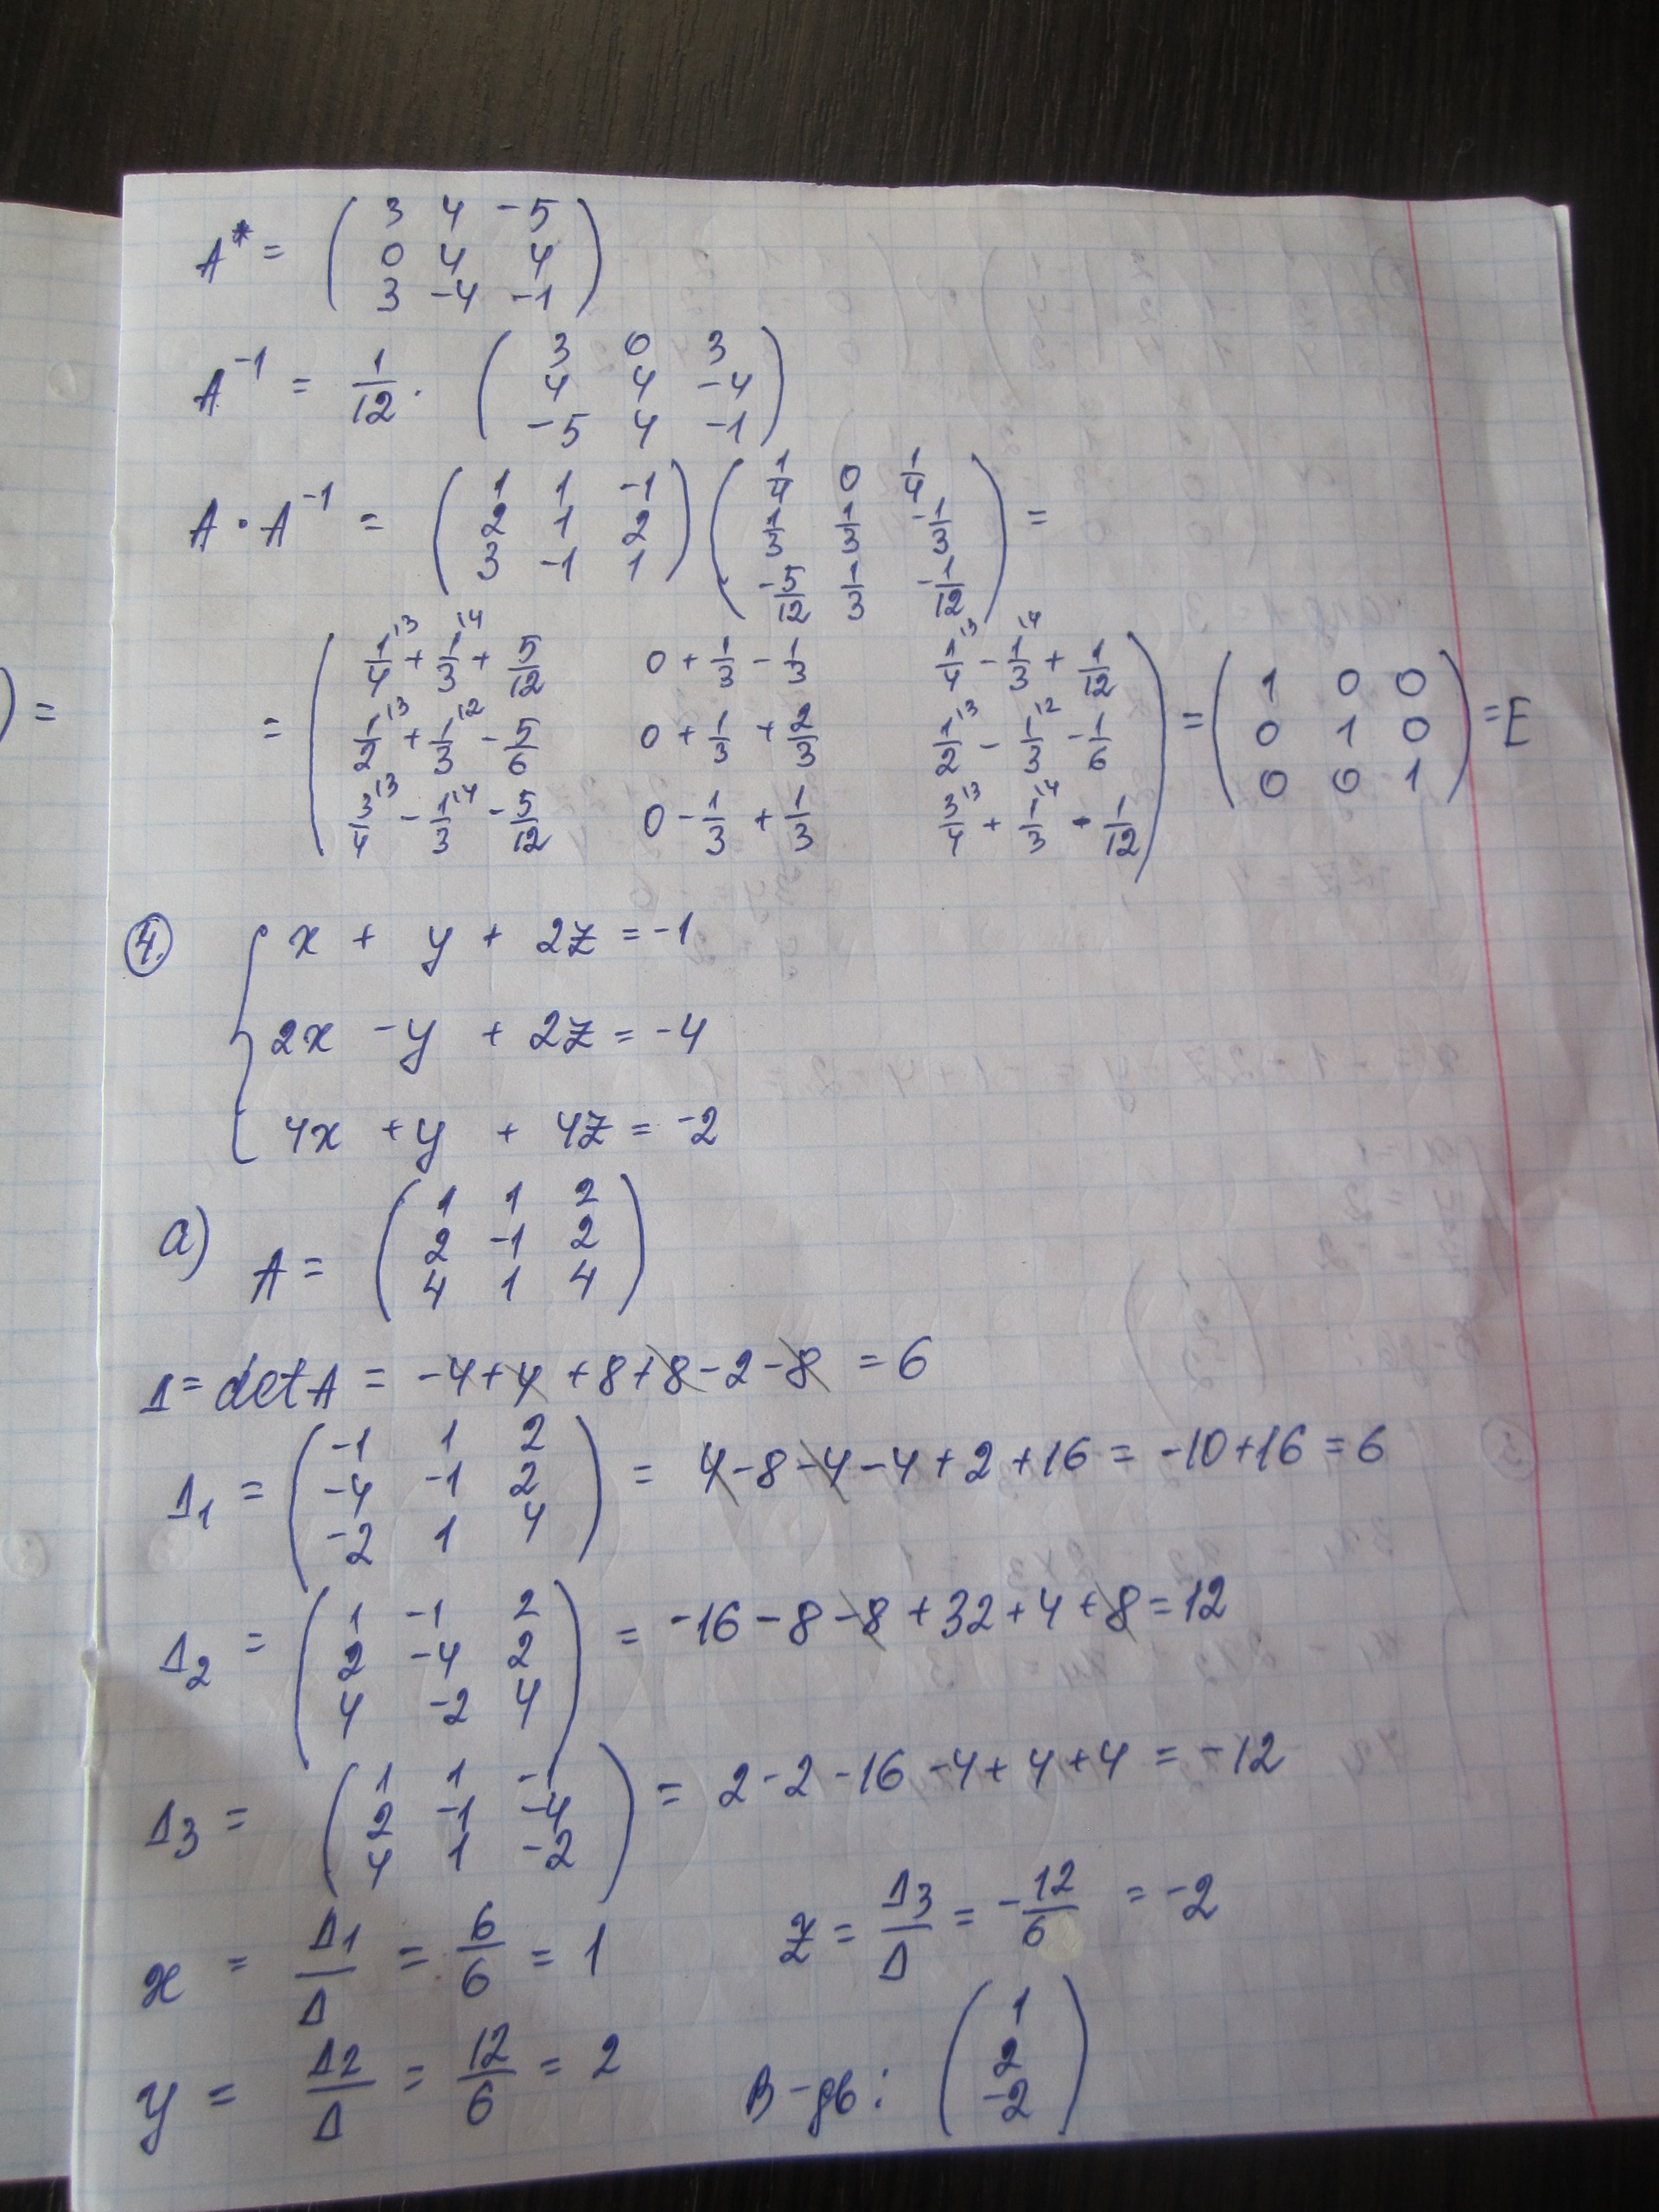 A* = ( 3 4 -5
0 4 4
3 -4 -1 )
A⁻¹ = 1/12 · ( 3 0 3
4 4 -4
-5 4 -1 )
A · A⁻¹ = ( 1 1 -1
2 1 2
3 -1 1 ) ( 1/4 0 1/4
1/3 1/3 -1/3
-5/12 1/3 -1/12 ) =
) =
= ( 1/4^{\3 + 1/3^{\4 + 5/12 0 + 1/3 - 1/3 1/4^{\3 - 1/3^{\4 + 1/12
1/2^{\3 + 1/3^{\2 - 5/6 0 + 1/3 + 2/3 1/2^{\3 - 1/3^{\2 - 1/6
3/4^{\3 - 1/3^{\4 - 5/12 0 - 1/3 + 1/3 3/4^{\3 + 1/3^{\4 - 1/12 ) = ( 1 0 0
0 1 0
0 0 1 ) = E
4. { x + y + 2z = -1
2x - y + 2z = -4
4x + y + 4z = -2
а) A = ( 1 1 2
2 -1 2
4 1 4 )
Δ = det A = -4 + 4 + 8 + 8 - 2 - 8 = 6
Δ1 = ( -1 1 2
-4 -1 2
-2 1 4 ) = 4 - 8 - 4 - 4 + 2 + 16 = -10 + 16 = 6
Δ2 = ( 1 -1 2
2 -4 2
4 -2 4 ) = -16 - 8 - 8 + 32 + 4 + 8 = 12
Δ3 = ( 1 1 -1
2 -1 -4
4 1 -2 ) = 2 - 2 - 16 - 4 + 4 + 4 = -12
x = Δ1/Δ = 6/6 = 1 z = Δ3/Δ = -12/6 = -2
y = Δ2/Δ = 12/6 = 2 В-дь: ( 1
2
-2 )